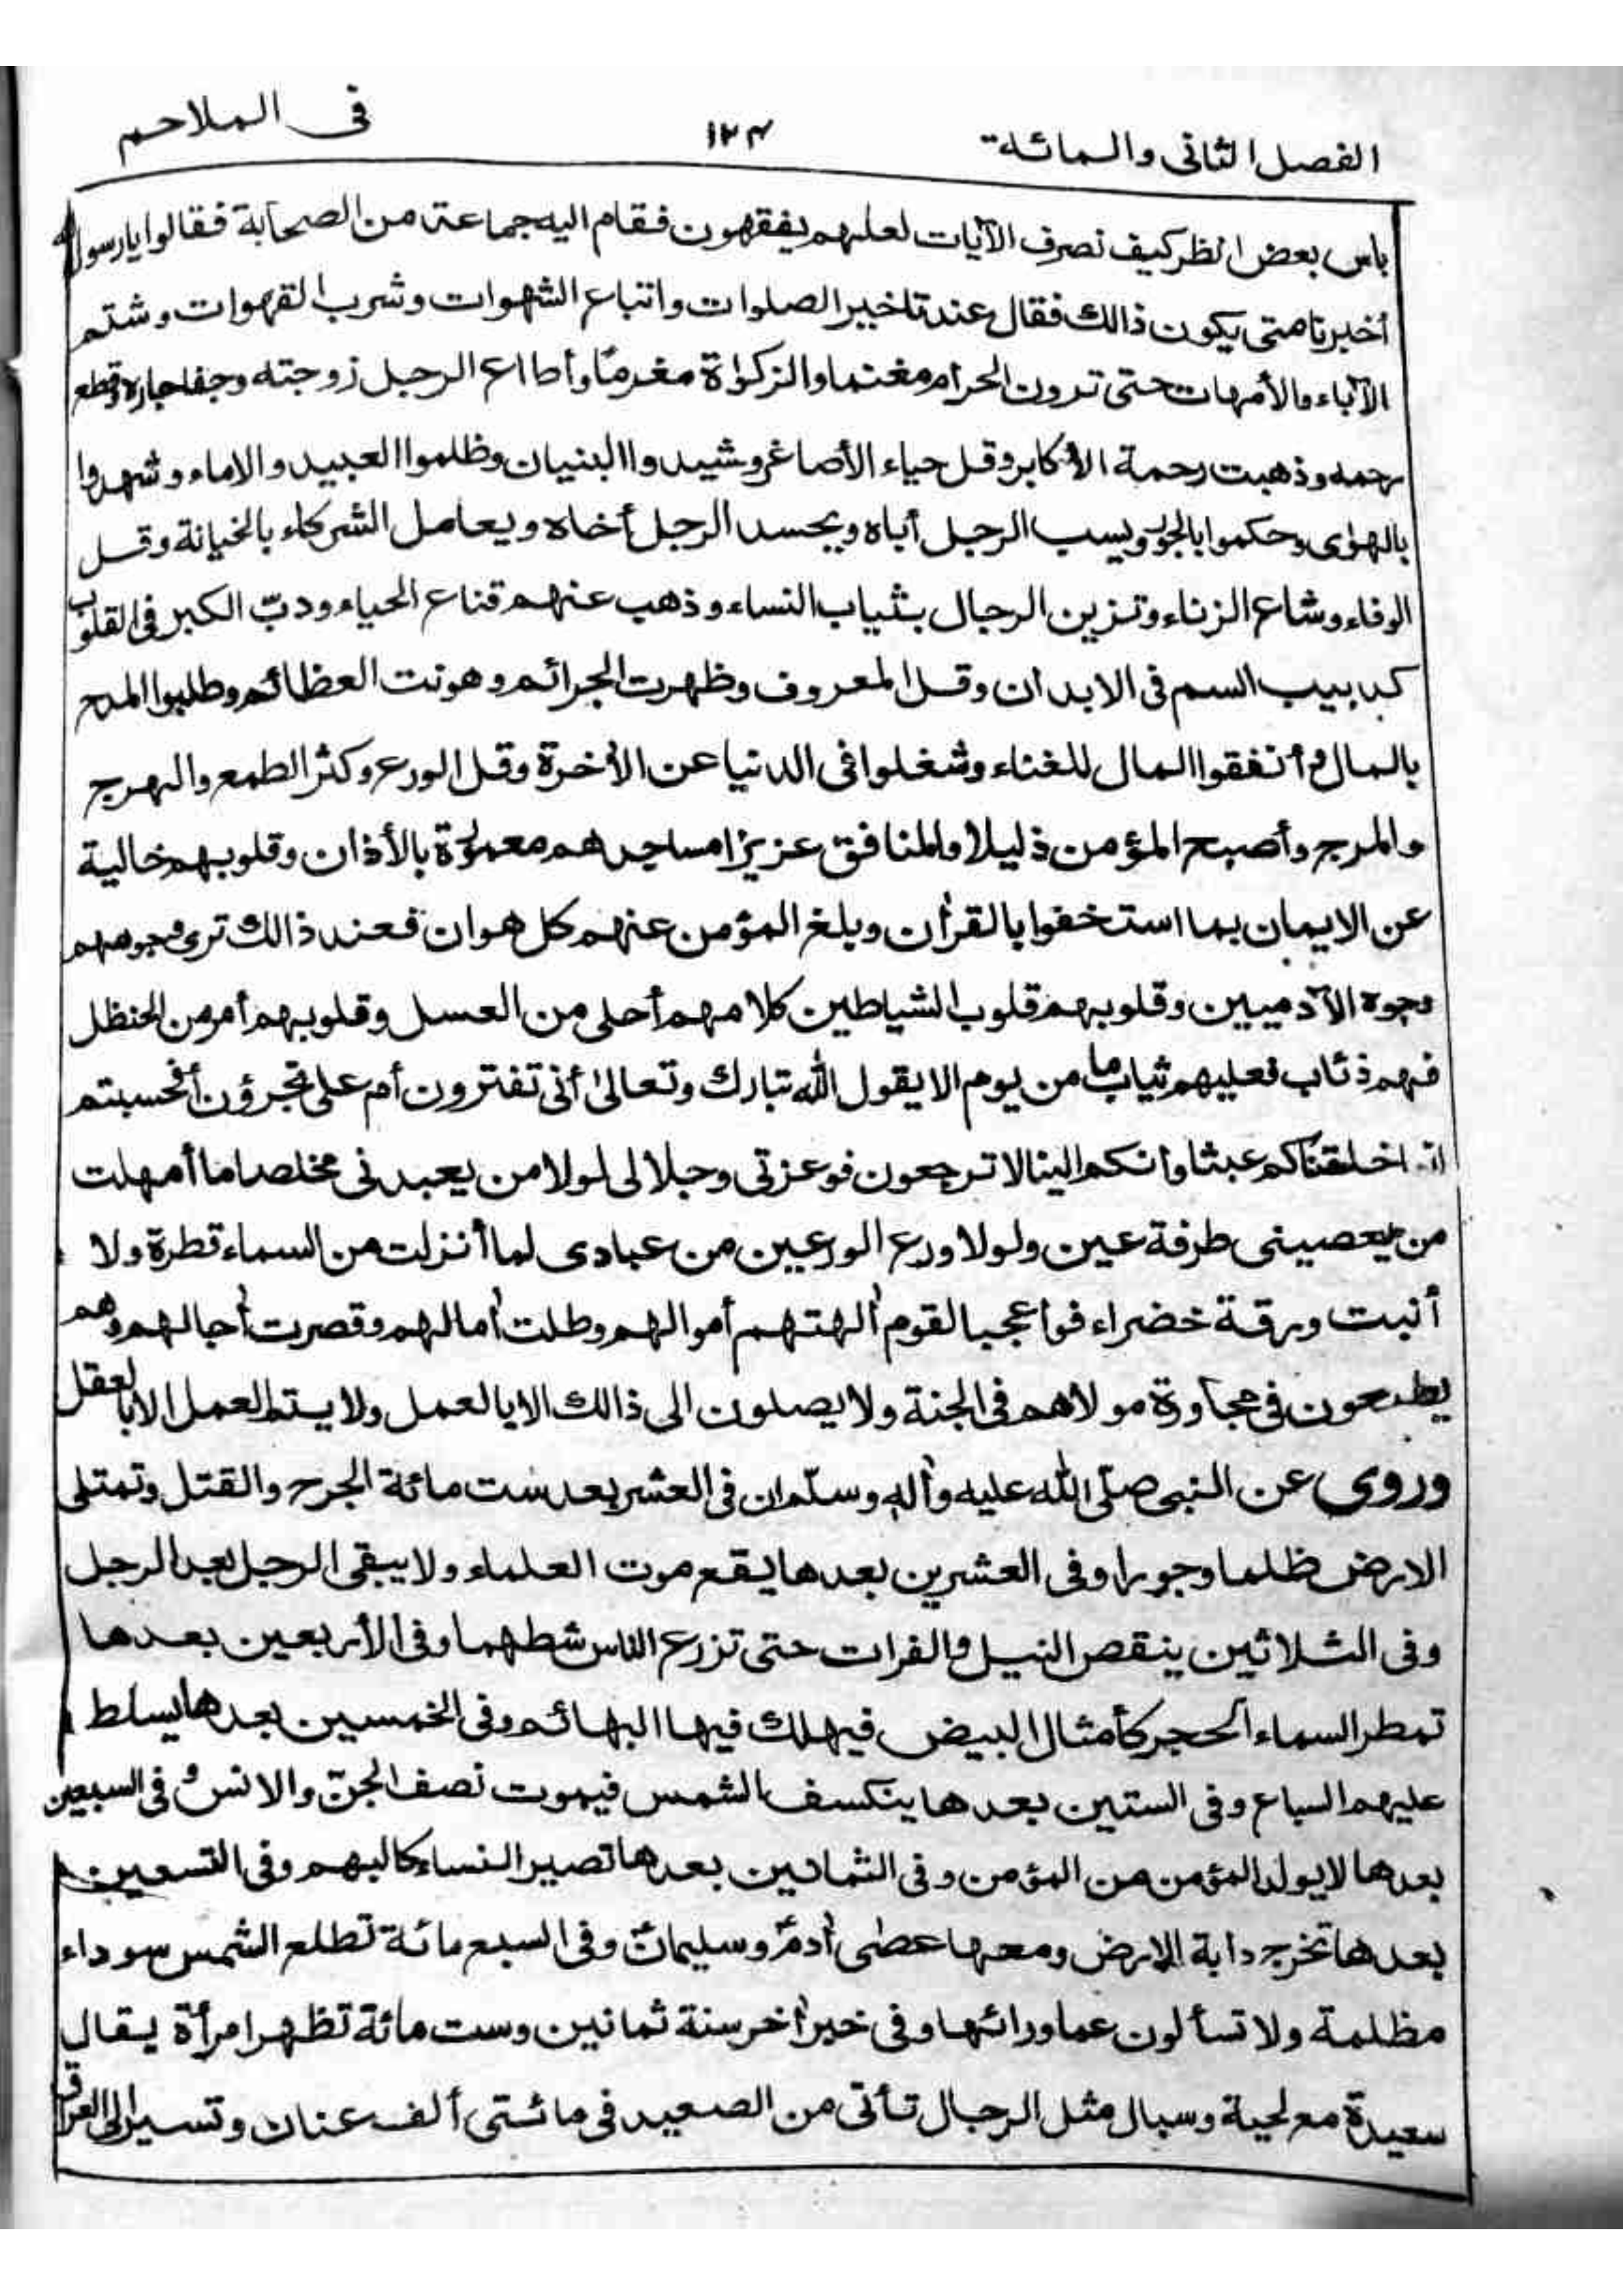 الفصل الثانى والمائة ١٢٤ فى الملاحم
باس بعض انظر كيف نصرف الآيات لعلهم يفقهون فقام اليه جماعة من الصحابة فقالوا يا رسول
أخبرنا متى يكون ذالك فقال عند تاخير الصلوات واتباع الشهوات وشرب القهوات وشتم
الآباء والأمهات حتى ترون الحرام مغنما والزكواة مغرمًا وأطااع الرجل زوجته وجفا جاره وقطع
رحمه وذهبت رحمة الأكابر وقل حياء الأصاغر وشيدوا البنيان وظلموا العبيد والاماء وشهدوا
بالهوٰى وحكموا بالجور ويسب الرجل أباه ويحسد الرجل أخاه ويعامل الشركاء بالخيانة وقل
الوفاء وشاع الزناء وتزين الرجال بثياب النساء وذهب عنهم قناع الحياء ودبّ الكبر فى القلوب
كدبيب السم فى الابدان وقل المعروف وظهرت الجرائم وهونت العظائم وطلبوا المدح
بالمال وأنفقوا المال للغناء وشغلوا فى الدنيا عن الأخرة وقل الورع وكثر الطمع والهرج
والمرج وأصبح المؤمن ذليلا والمنافق عزيزا مساجدهم معمورة بالأذان وقلوبهم خالية
عن الايمان بما استخفوا بالقرأن وبلغ المؤمن عنهم كل هوان فعند ذالك ترى وجوههم
وجوه الآدميين وقلوبهم قلوب الشياطين كلامهم أحلى من العسل وقلوبهم أمر من الحنظل
فهم ذئاب فعليهم ثياب ما من يوم الا يقول الله تبارك وتعالىٰ أنى تفترون أم على تجرؤن أفحسبتم
انما خلقناكم عبثا وانكم الينا لا ترجعون فوعزتى وجلالى لولا من يعبدنى مخلصا ما أمهلت
من يعصينى طرفة عين ولولا ورع الورعين من عبادى لما أنزلت من السماء قطرة ولا
أنبت ورقة خضراء فواعجبا لقوم ألهتهم أموالهم وطلت أمالهم وقصرت أجالهم وهم
يطمعون فى مجاورة مولاهم فى الجنة ولا يصلون الى ذالك الا بالعمل ولا يستم العمل الا بالعقل
وروى عن النبى صلّى الله عليه وأله وسلّم ان فى العشر بعد ست مائة الجرح والقتل وتمتلى
الارض ظلما وجورا وفى العشرين بعدها يقع موت العلماء ولا يبقى الرجل بعد الرجل
وفى الثلاثين ينقص النيل والفرات حتى تزرع الناس شطهما وفى الأربعين بعدها
تمطر السماء الحجر كأمثال البيض فيهلك فيها البهائم وفى الخمسين بعدها يسلط
عليهم السباع وفى الستين بعدها ينكسف الشمس فيموت نصف الجنّ والانس وفى السبعين
بعدها لا يولد المؤمن من المؤمن وفى الثمانين بعدها تصير النساء كالبهم وفى التسعين
بعدها تخرج دابة الارض ومعها عصٰى أدم وسليمان وفى السبع مائة تطلع الشمس سوداء
مظلمة ولا تسألون عما ورائها وفى خبر أخر سنة ثمانين وست مائة تظهر امرأة يقال
سعيدة مع لحية وسبال مثل الرجال تأتى من الصعيد فى مائتى ألف عنان وتسير الى العراق